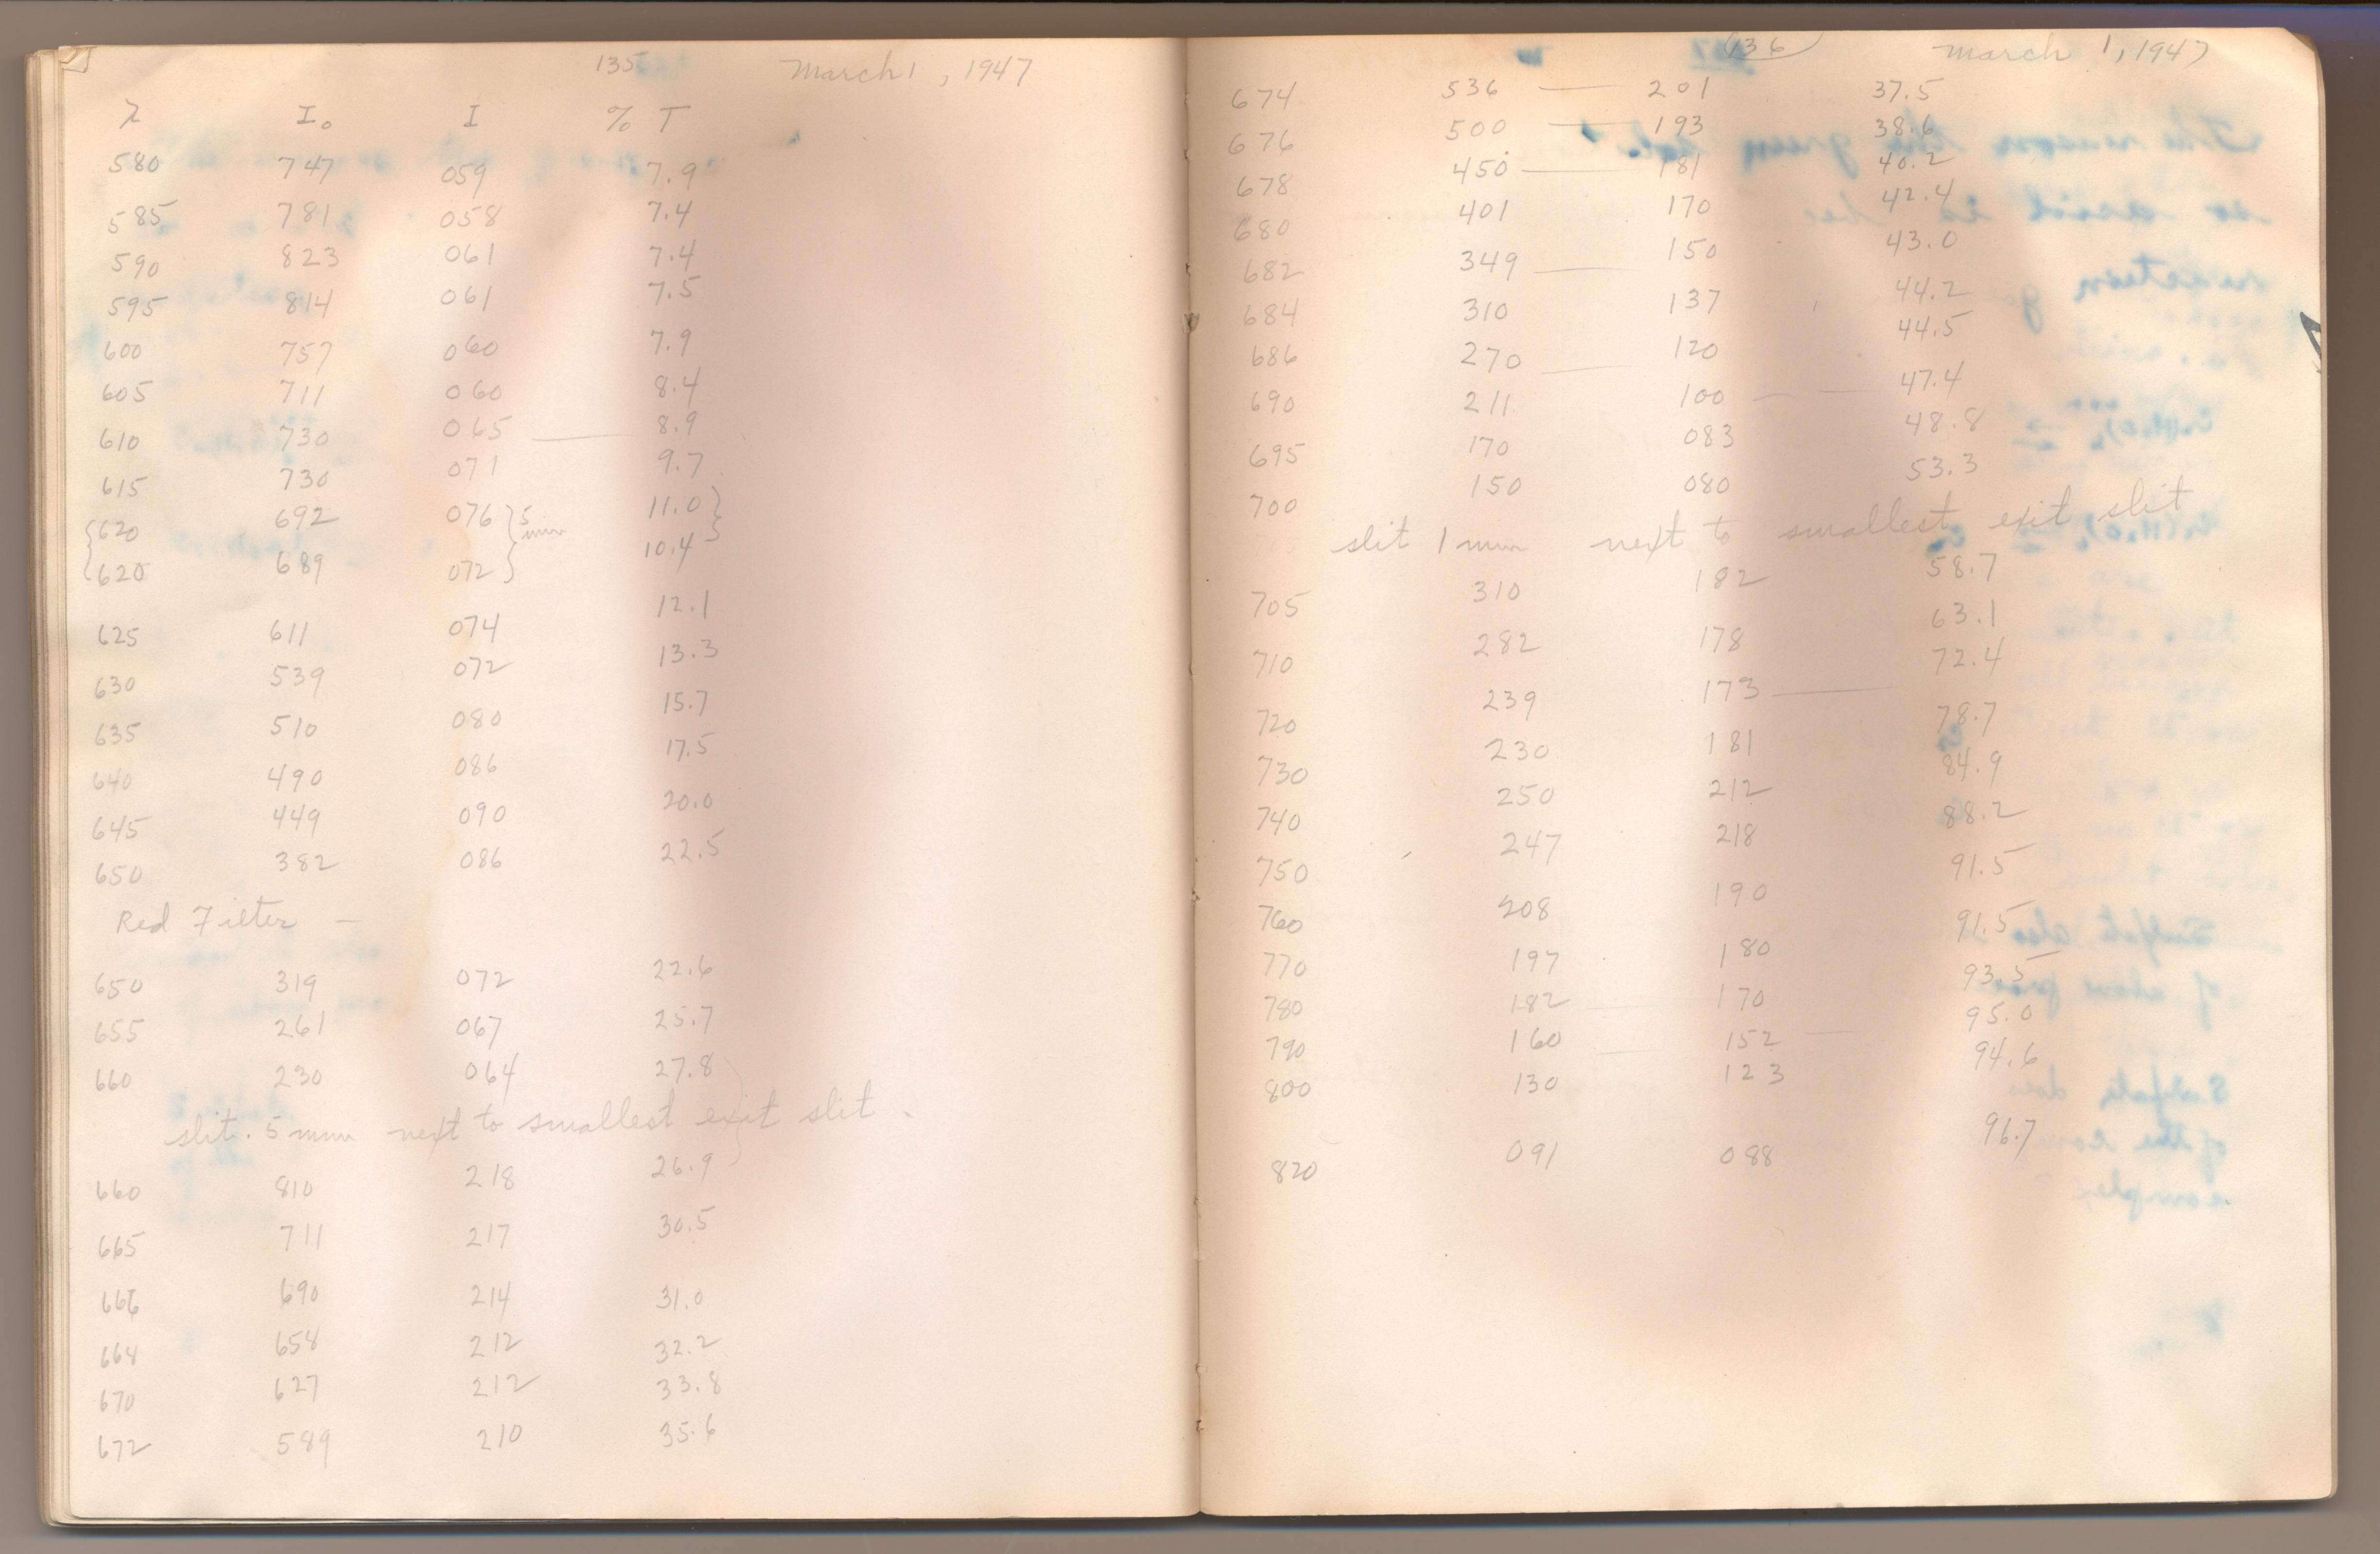 135 March 1, 1947
λ I₀ I % T
580 747 059 7.9
585 781 058 7.4
590 823 061 7.4
595 814 061 7.5
600 757 060 7.9
605 711 060 8.4
610 730 065 — 8.9
615 730 071 9.7
{620 692 076 } 5 min 11.0 }
{620 689 072 } 10.4 }
625 611 074 12.1
630 539 072 13.3
635 510 080 15.7
640 490 086 17.5
645 449 090 20.0
650 382 086 22.5
Red Filter —
650 319 072 22.6
655 261 067 25.7
660 230 064 27.8
slit .5 mm next to smallest exit slit .
660 810 218 26.9
665 711 217 30.5
666 690 214 31.0
668 658 212 32.2
670 627 212 33.8
672 589 210 35.6
136 March 1, 1947
674 536 — 201 37.5
676 500 — 193 38.6
678 450 — 181 40.2
680 401 170 42.4
682 349 — 150 43.0
684 310 137 44.2
686 270 — 120 44.5
690 211 100 — 47.4
695 170 083 48.8
700 150 080 53.3
slit 1 mm next to smallest exit slit
705 310 182 58.7
710 282 178 63.1
720 239 173 — 72.4
730 230 181 78.7
740 250 212 84.9
750 247 218 88.2
760 208 190 91.5
770 197 180 91.5
780 182 — 170 93.5
790 160 — 152 — 95.0
800 130 123 94.6
820 091 088 96.7